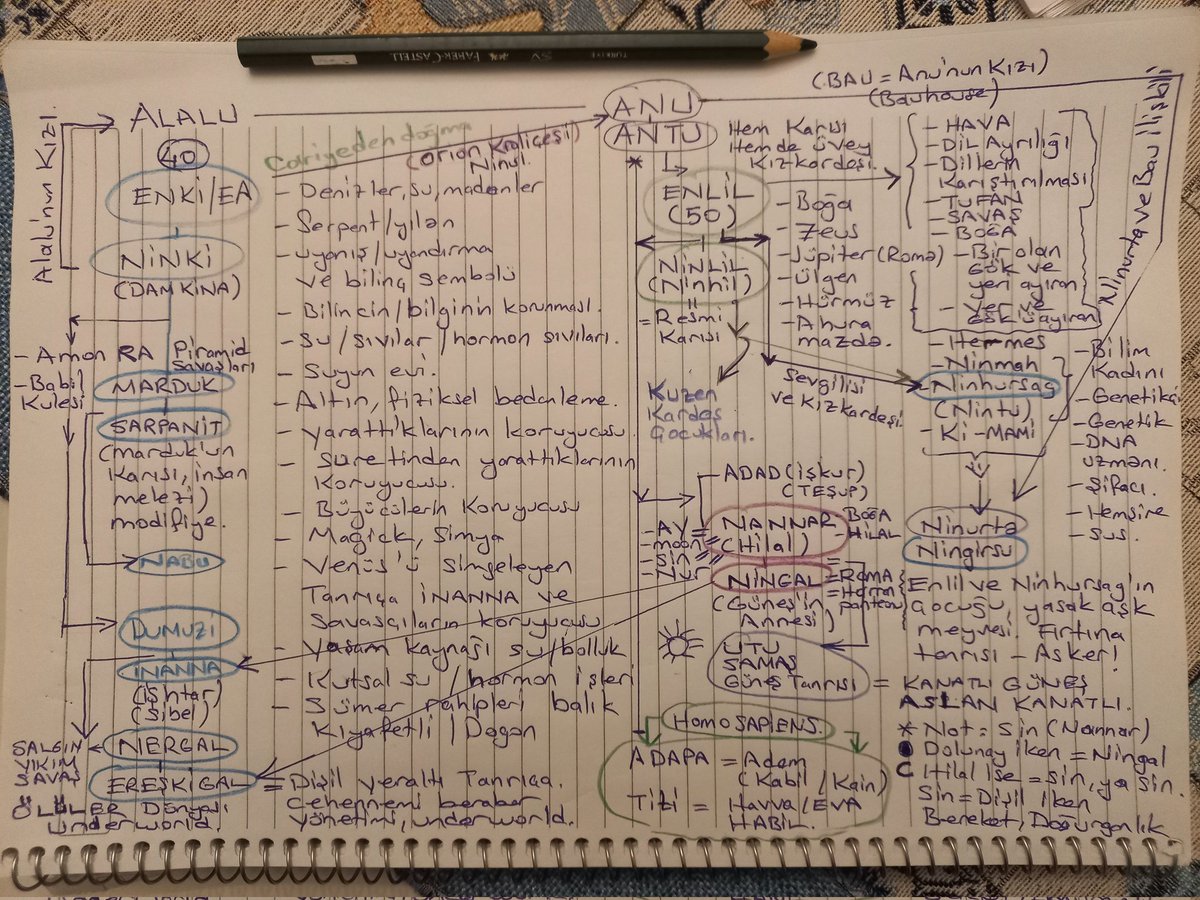 TÜRKİYE
FABER-CASTELL
SV
Alalu'nun Kızı.
ALALU
40
ENKİ/EA
NİNKİ
(DAMKINA)
- Amon RA Piramid
Savaşları
- Babil
Kulesi
MARDUK
SARPANİT
(marduk'un
karısı, insan
melezi)
modifiye.
NABU
DUMUZİ
İNANNA
(İshtar)
(Sibel)
SALGIN
YIKIM
SAVAŞ
NERGAL
EREŞKİGAL
ÖLÜLER Dünyası
Underworld.
Cariyeden doğma
(Orion Kraliçesi)
Ninul
- Denizler, su, madenler
- Serpent/yılan
- uyanış/uyandırma
ve bilinç sembolü
- Bilincin/bilginin korunması.
- Su/sıvılar/hormon sıvıları.
- Suyun evi.
- Altın, fiziksel bedenleme.
- yarattıklarının koruyucusu
- Suretinden yarattıklarının
Koruyucusu.
- Büyücülerin Koruyucusu
- Magick, Simya
- Venüs'ü Simgeleyen
Tanrıça İNANNA ve
Savaşçıların koruyucusu
- Yaşam kaynağı su/bolluk
- Kutsal su / hormon işleri
- Sümer rahipleri balık
Kıyafetli / Dagon
= Dişil yeraltı Tanrıça.
Cehennemi beraber
yönetimi, underworld.
ANU
ANTU
*
Hem Karısı
Hemde üvey
Kızkardeşi.
(BAU = Anu'nun Kızı)
(Bauhouse)
ENLİL
(50)
NİNLİL
(Ninhil)
= Resmi
Karısı
Kuzen
Kardeş
Çocukları.
- Boğa
- Zeus
- Jüpiter (Roma)
- Ülgen
- Hürmüz
- Ahura
mazda.
Sevgilisi
ve Kızkardeşi.
- HAVA
- Dil Ayrılığı
- Dillerin
Karıştırılması
- TUFAN
- SAVAŞ
- BOĞA
- Bir olan
Gök ve
yeri ayıran
- Yer ve
Gökü ayıran
- Hermes
Ninmah
Ninhursag
(Nintu)
- Kİ-MAMİ
- Bilim
Kadını
- Genetikçi
- Genetik
- DNA
uzmanı.
- Şifacı.
- Hemşire
- Sus.
Ninurta ve Bau ilişkili
ADAD (işkur)
(TEŞUP)
- AY
- moon
- Sin
- Nur
NANNAR
(Hilal)
BOĞA
- HİLAL
NİNGAL
= Roma
= Harran
panteon
(Güneş'in
Annesi)
UTU
SAMAŞ
Güneş Tanrısı
= KANATLI GÜNEŞ
ASLAN KANATLI.
Ninurta
Ningirsu
Enlil ve Ninhursag'ın
çocuğu, yasak aşk
meyvesi. Fırtına
tanrısı - Asker!
HOMO SAPIENS.
ADAPA = Adem
(Kabil / Kain)
TİTİ = Havva/EVA
HABİL.
* Not = Sin (Nannar)
Dolunay iken = Ningal
Hilal ise = Sin, ya sin.
Sin = Dişil iken
Bereket, Doğurganlık